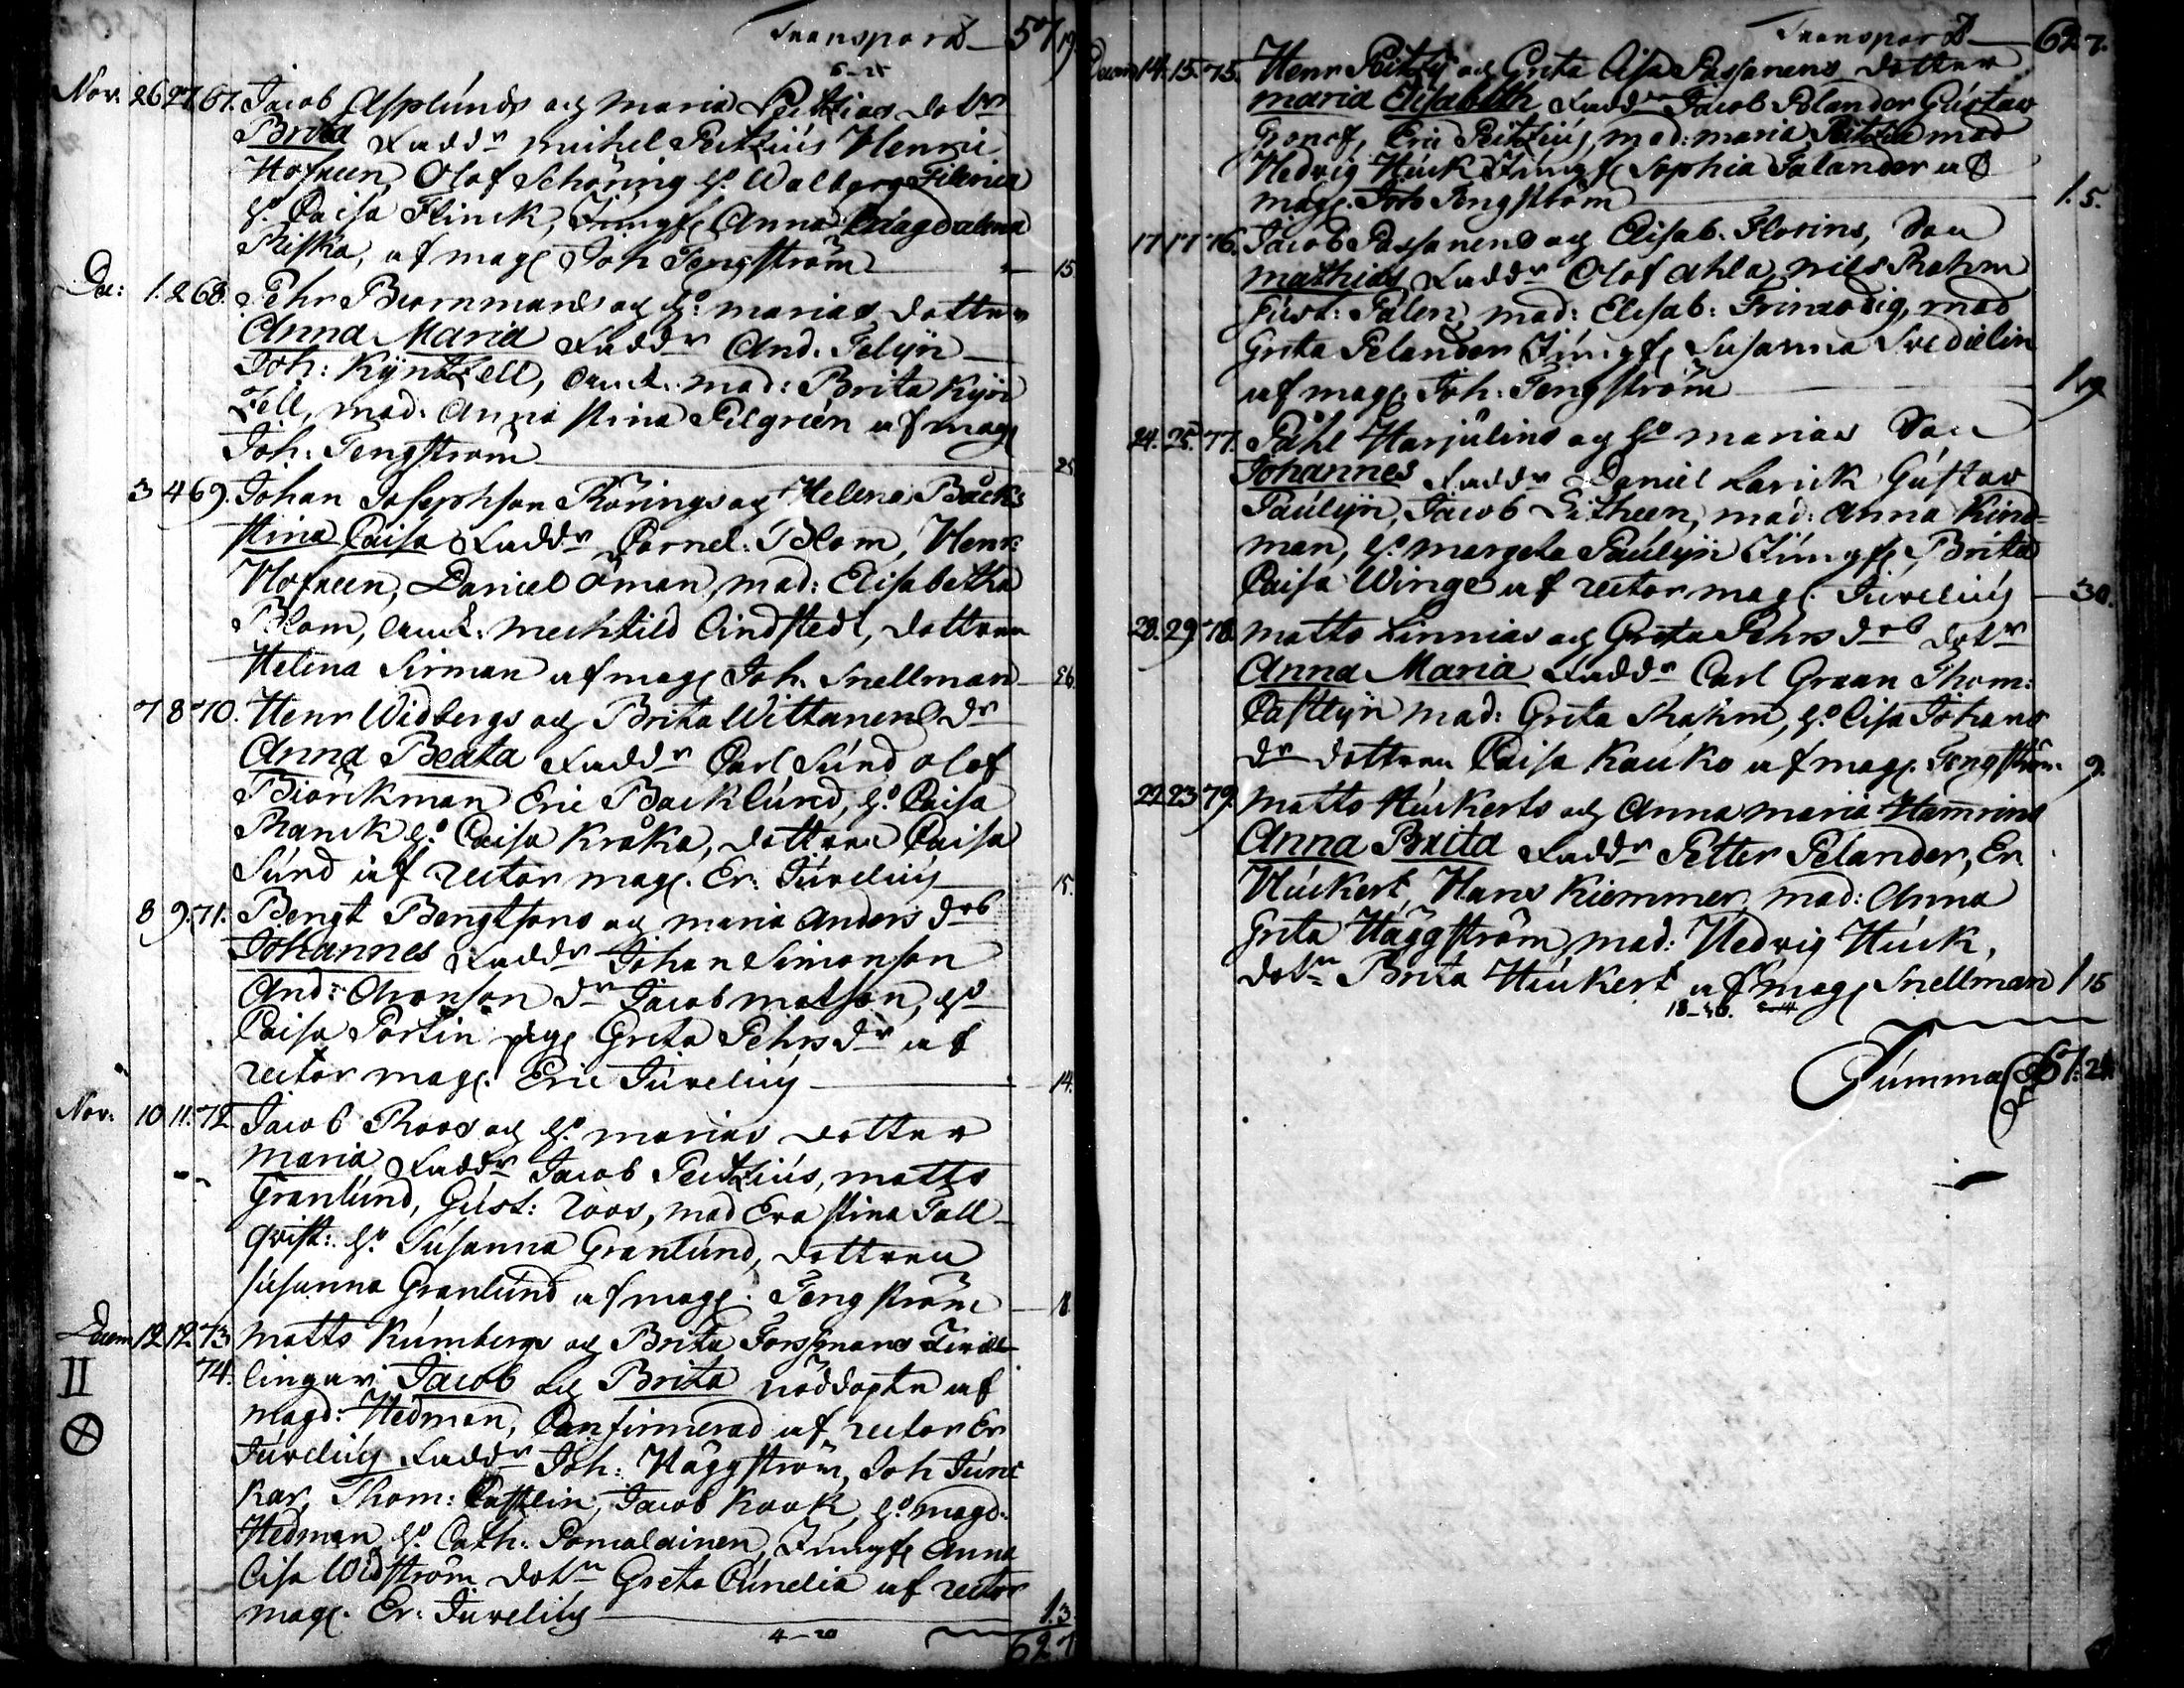 Transport 57 19
6-25
Nov: 26 27 67. Jacob Asplúnds och Maria Peitzias dotr
Brita Faddr Michel Peitziús Henric
Hofreen, Olof Schöring h: Walborg
h: Caisa Flinck, Jungf Anna Magdalena
Riska, af mag Joh Tengström 15
Dec: 1. 2 68. Pehr Biörnmans och h: Marias dotter
Anna Maria Faddr And. Felijn
Joh: Kÿntzell, mad: Brita Kÿn
tzell, mad. Anna Stina Pilgreen af mag
Joh. Tengström 25
3 4 69. Johan Josephson Rörings och Helena Bäcks
Stina Caisa Faddr Cornel: Blom, Henr:
Hofreen, Daniel Öman, mad: Elisabetha
Blom, mechtild Lindstedt, dottren
Helena Sirman af mag Joh. Snellman 26.
7 8 70. Henr Widbergs och Brita Wittanens dr
Anna Beata Faddr Carl Súnd Olof
Biörckman Eric Backlúnd, h: Caisa
Ranck h: Caisa Kråka, dottren Caisa
Súnd af rector mag. Er: Júveliús 15.
8 9. 71. Bengt Bengtsons och Maria Anders drs
Johannes Faddr Johan Simonson
And: Aronson dr Jacob Matson, h:
Caisa Portin pig Greta Pehrs dr af
rector mag. Eric Júveliús 14.
Nov: 10 11. 72 Jacob Roos och h: Marias dotter
Maria Faddr Jacob Peitziús, Matts
Granlúnd, Gúst: Roos, mad Eva Stina Tall-
qvist: h: Súsanna Granlúnd, dottren
Súsanna Granlúnd af mag. Tengström 18
Decem 12 12 73 Matts Kúmbergs och Brita Forssmans Tvil-
II 74. lingar Jacob och Brita nöddöpte af
Magd: Hedman, Confirmerad af rector Er
Júveliús Faddr Joh: Häggström, Joh Júnc
kar, Thom: Castlin, Jacob Kook, h: Magd:
Hedman h: Cath: Pomalainen, Jungf Anna
Lisa Widström dotr Greta Cúnelia af rector
mag. Er: Júveliús 1.3.
4-20
62 7
Transport 62. 7.
Decem 14. 15. 75. Henr Peitzii och Greta Lisa Passanens dotter
Maria Elisabeth Faddr Jacob Polander Gústav
Gronof, Eric Peitziús mad: Maria Peitzia mad
Hedvig Húck Jungf Sophia Salander af
mag. Joh Tengström 1. 5.
17 17 76. Jacob Passanens och Elisab. Florins, Son
Mathias Faddr Olof Ahla, Nils Rahm
Gúst: Palen, mad: Elisab: Frimodig, mad
Greta Pelander Júngf Susanna Svedelin
af mag. Joh: Tengström 1. 19
24. 25. 77. Påhl Harjúlins och h: Marias Son
Johannes Faddr Daniel Larick Gústav
Paúlijn, Jacob Litheen, mad: Anna Kind-
man, h: Margeta Paúlijn Júngf Brita
Caisa Winge af rector mag. Júveliús 30.
28. 29 78. Matts Linnias och Greta Pehrs drs dotr
Anna Maria Faddr Carl Graan Thom:
Castlijn mad: Greta Rahm, h: Lisa Johans
dr dottren Caisa Kaúko af mag. Tengström 9.
22 23 79. Matts Húckerts och Anna Maria Hamrins
Anna Brita Faddr Petter Pelander, Er.
Húckert, Hans Kiemmer, mad: Anna
Greta Häggström, mad: Hedvig Húck,
dotr Brita Húckert af mag Snellman 1 15
18-46.
Súmma 67: 28